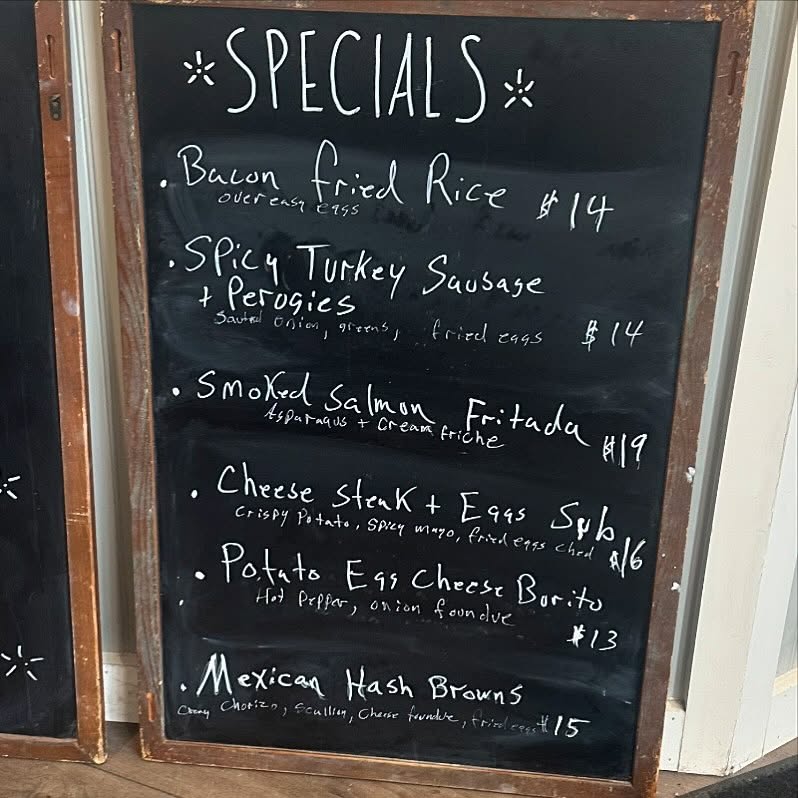 SPECIALS
Bacon Fried Rice $14
over easy eggs
Spicy Turkey Sausage
+ Perogies
Sauted onion, greens, fried eggs $14
Smoked Salmon Fritada
Asparagus + Cream friche $19
Cheese Steak + Eggs Sub
Crispy Potato, Spicy mayo, fried eggs ched $16
Potato Egg Cheese Borito
Hot Pepper, onion foundue
$13
Mexican Hash Browns
Chorizo, Scullion, Cheese foundue, fried eggs $15